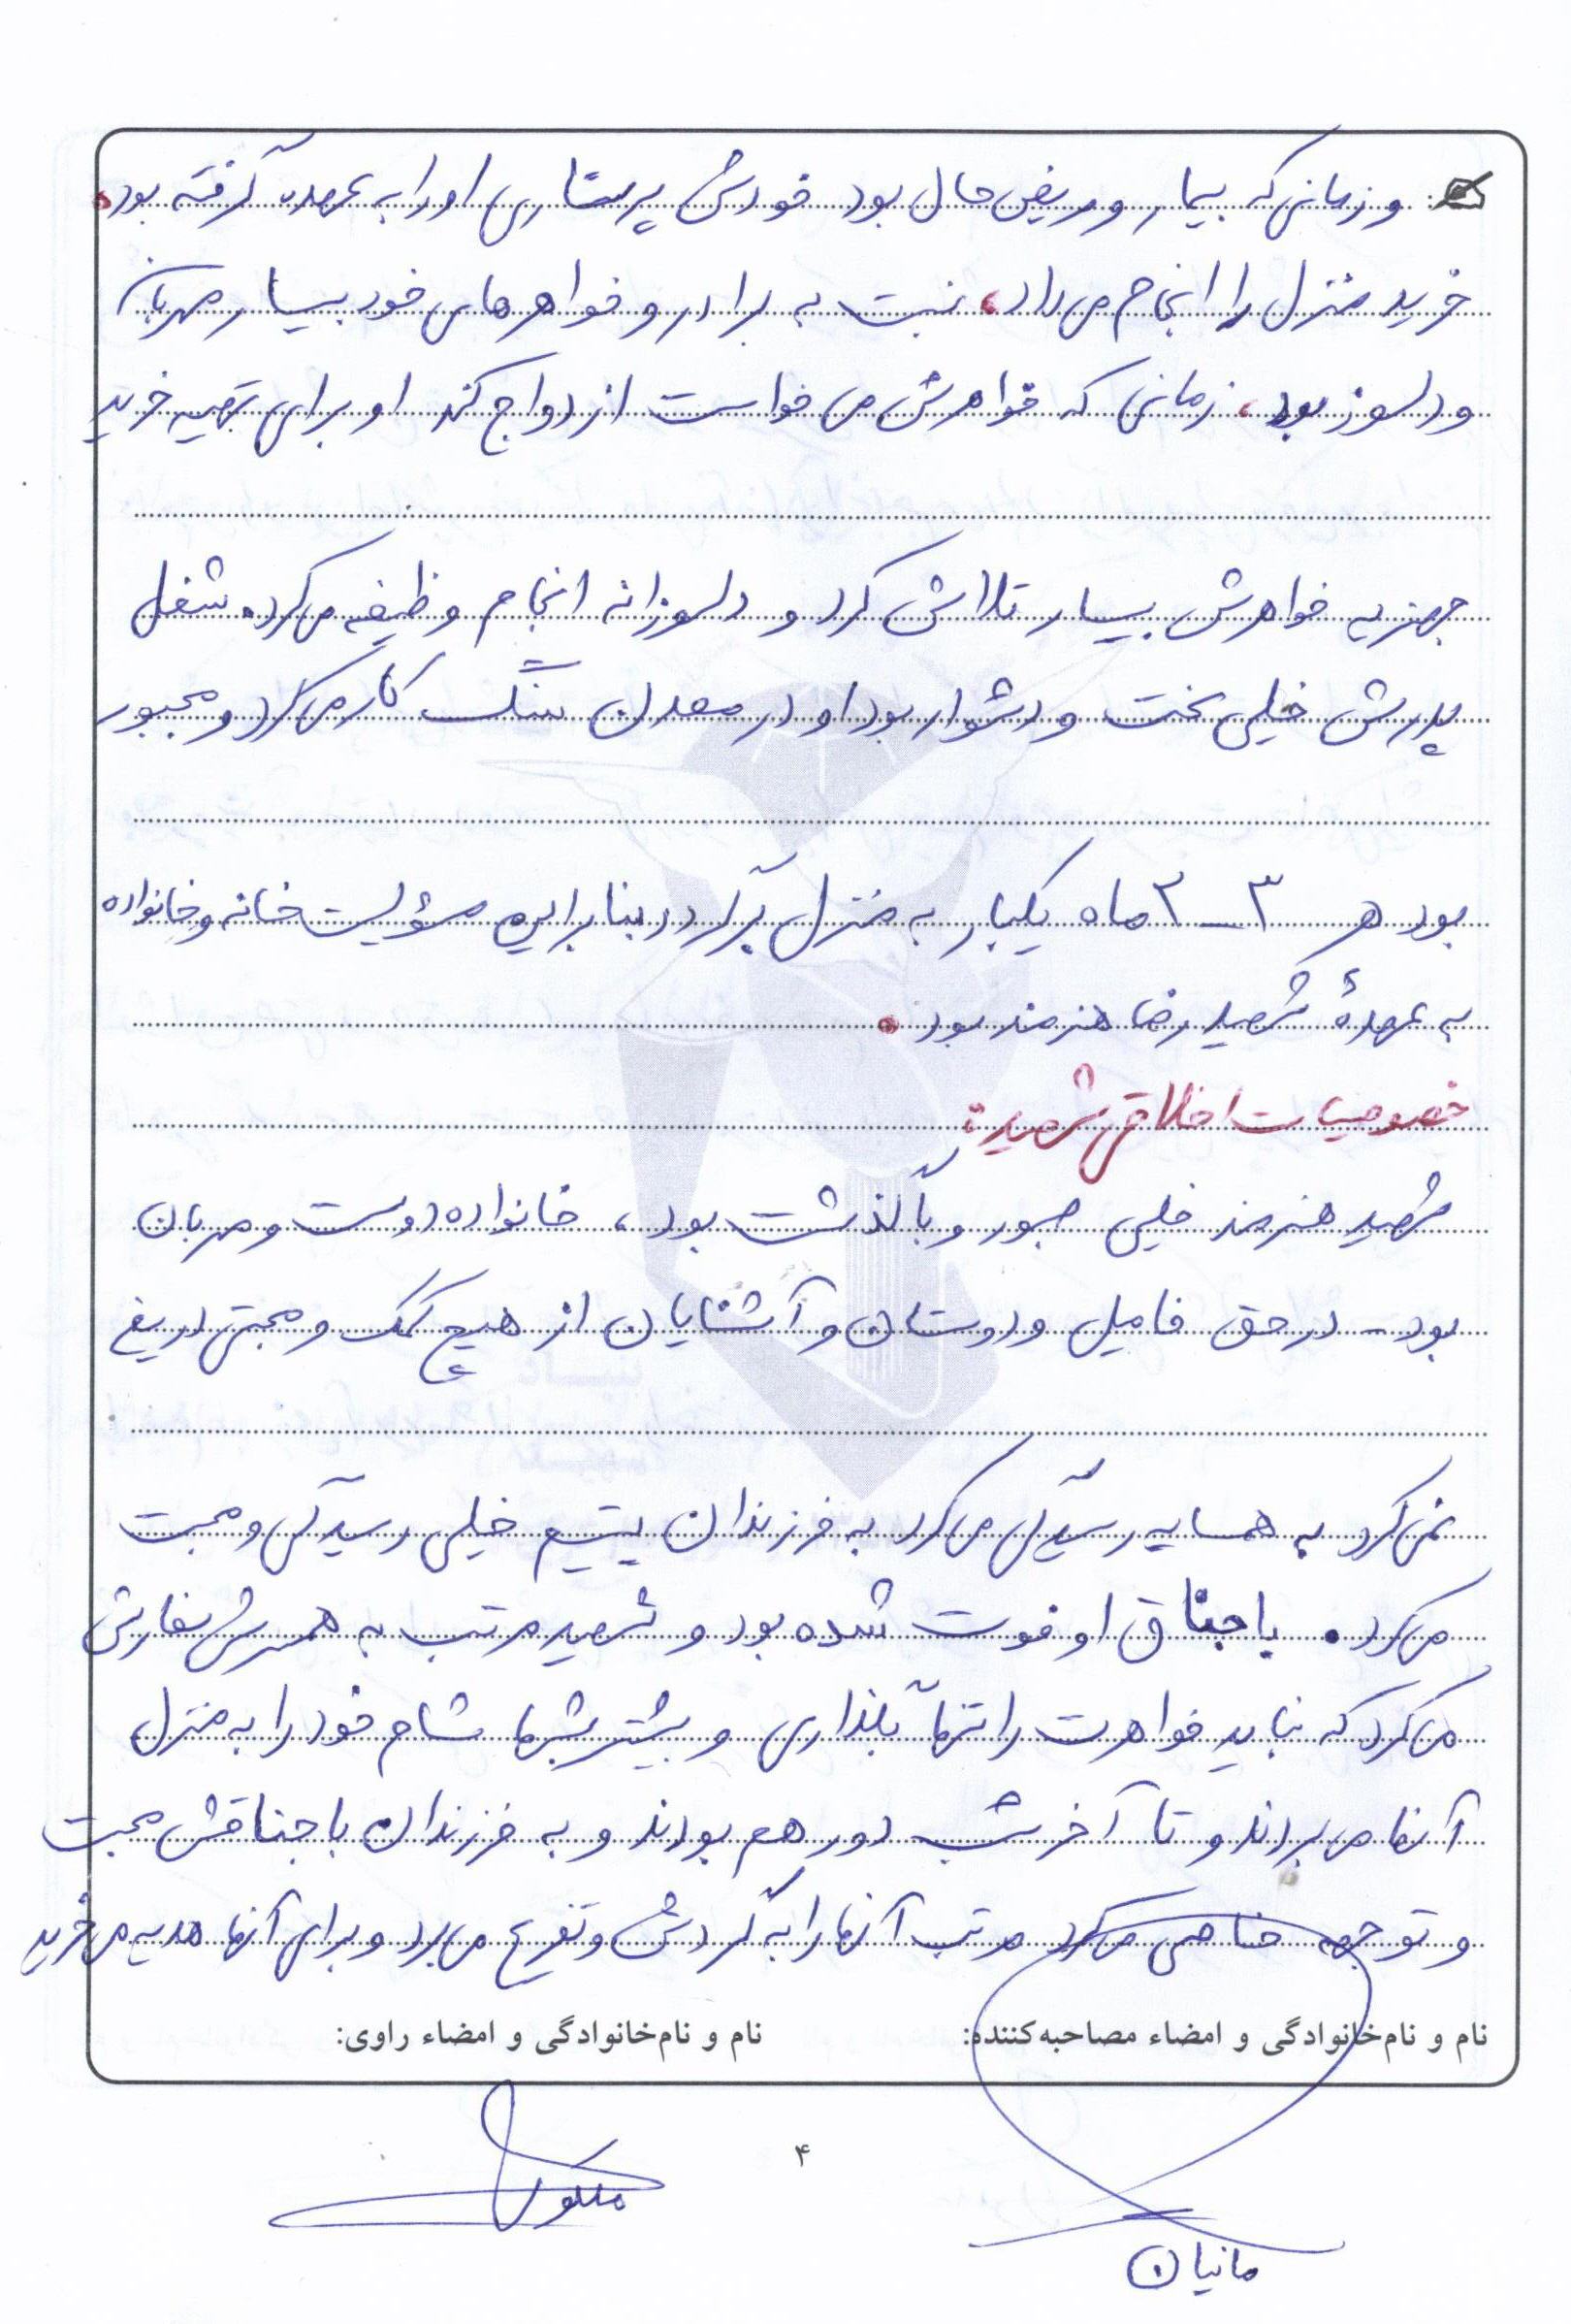 و زمانی که بیمار و مریض حال بود خودش پرستاری او را به عهده گرفته بود.
خرید منزل را انجام می‌داد، نسبت به برادر و خواهرهای خود بسیار مهربان
و دلسوز بود، زمانی که خواهرش می خواست ازدواج کند او برای تهیه خرید
جهزیه خواهرش بسیار تلاش کرد و دلسوزانه انجام وظیفه می‌کرد. شغل
پدرش خیلی سخت و دشوار بود او در معدن سنگ کار می‌کرد و مجبور
بود هر ۳-۲ ماه یکبار به منزل برگردد بنابراین مسؤلیت خانه و خانواده
به عهدهٔ شهید رضا هنرمند بود.
خصوصیات اخلاقی شهید:
شهید هنرمند خیلی صبور و باگذشت بود، خانواده دوست و مهربان
بود- در حق فامیل و دوستان و آشنایان از هیچ کمک و محبتی دریغ
نمی‌کرد به همسایه رسیدگی می‌کرد به فرزندان یتیم خیلی رسیدگی و محبت
می‌کرد. باجناق او فوت شده بود و شهید مرتب به همسرش سفارش
می‌کرد که نباید خواهرت را تنها بگذاری و بیشتر شبها شام خود را به منزل
آنها می‌بردند و تا آخر شب دور هم بودند و به فرزندان باجناقش محبت
و توجه خاصی می‌کرد مرتب آنها را به گردش و تفریح می‌برد و برای آنها هدیه می‌خرید
نام و نام‌خانوادگی و امضاء مصاحبه‌کننده:
نام و نام‌خانوادگی و امضاء راوی:
۴
مانیان